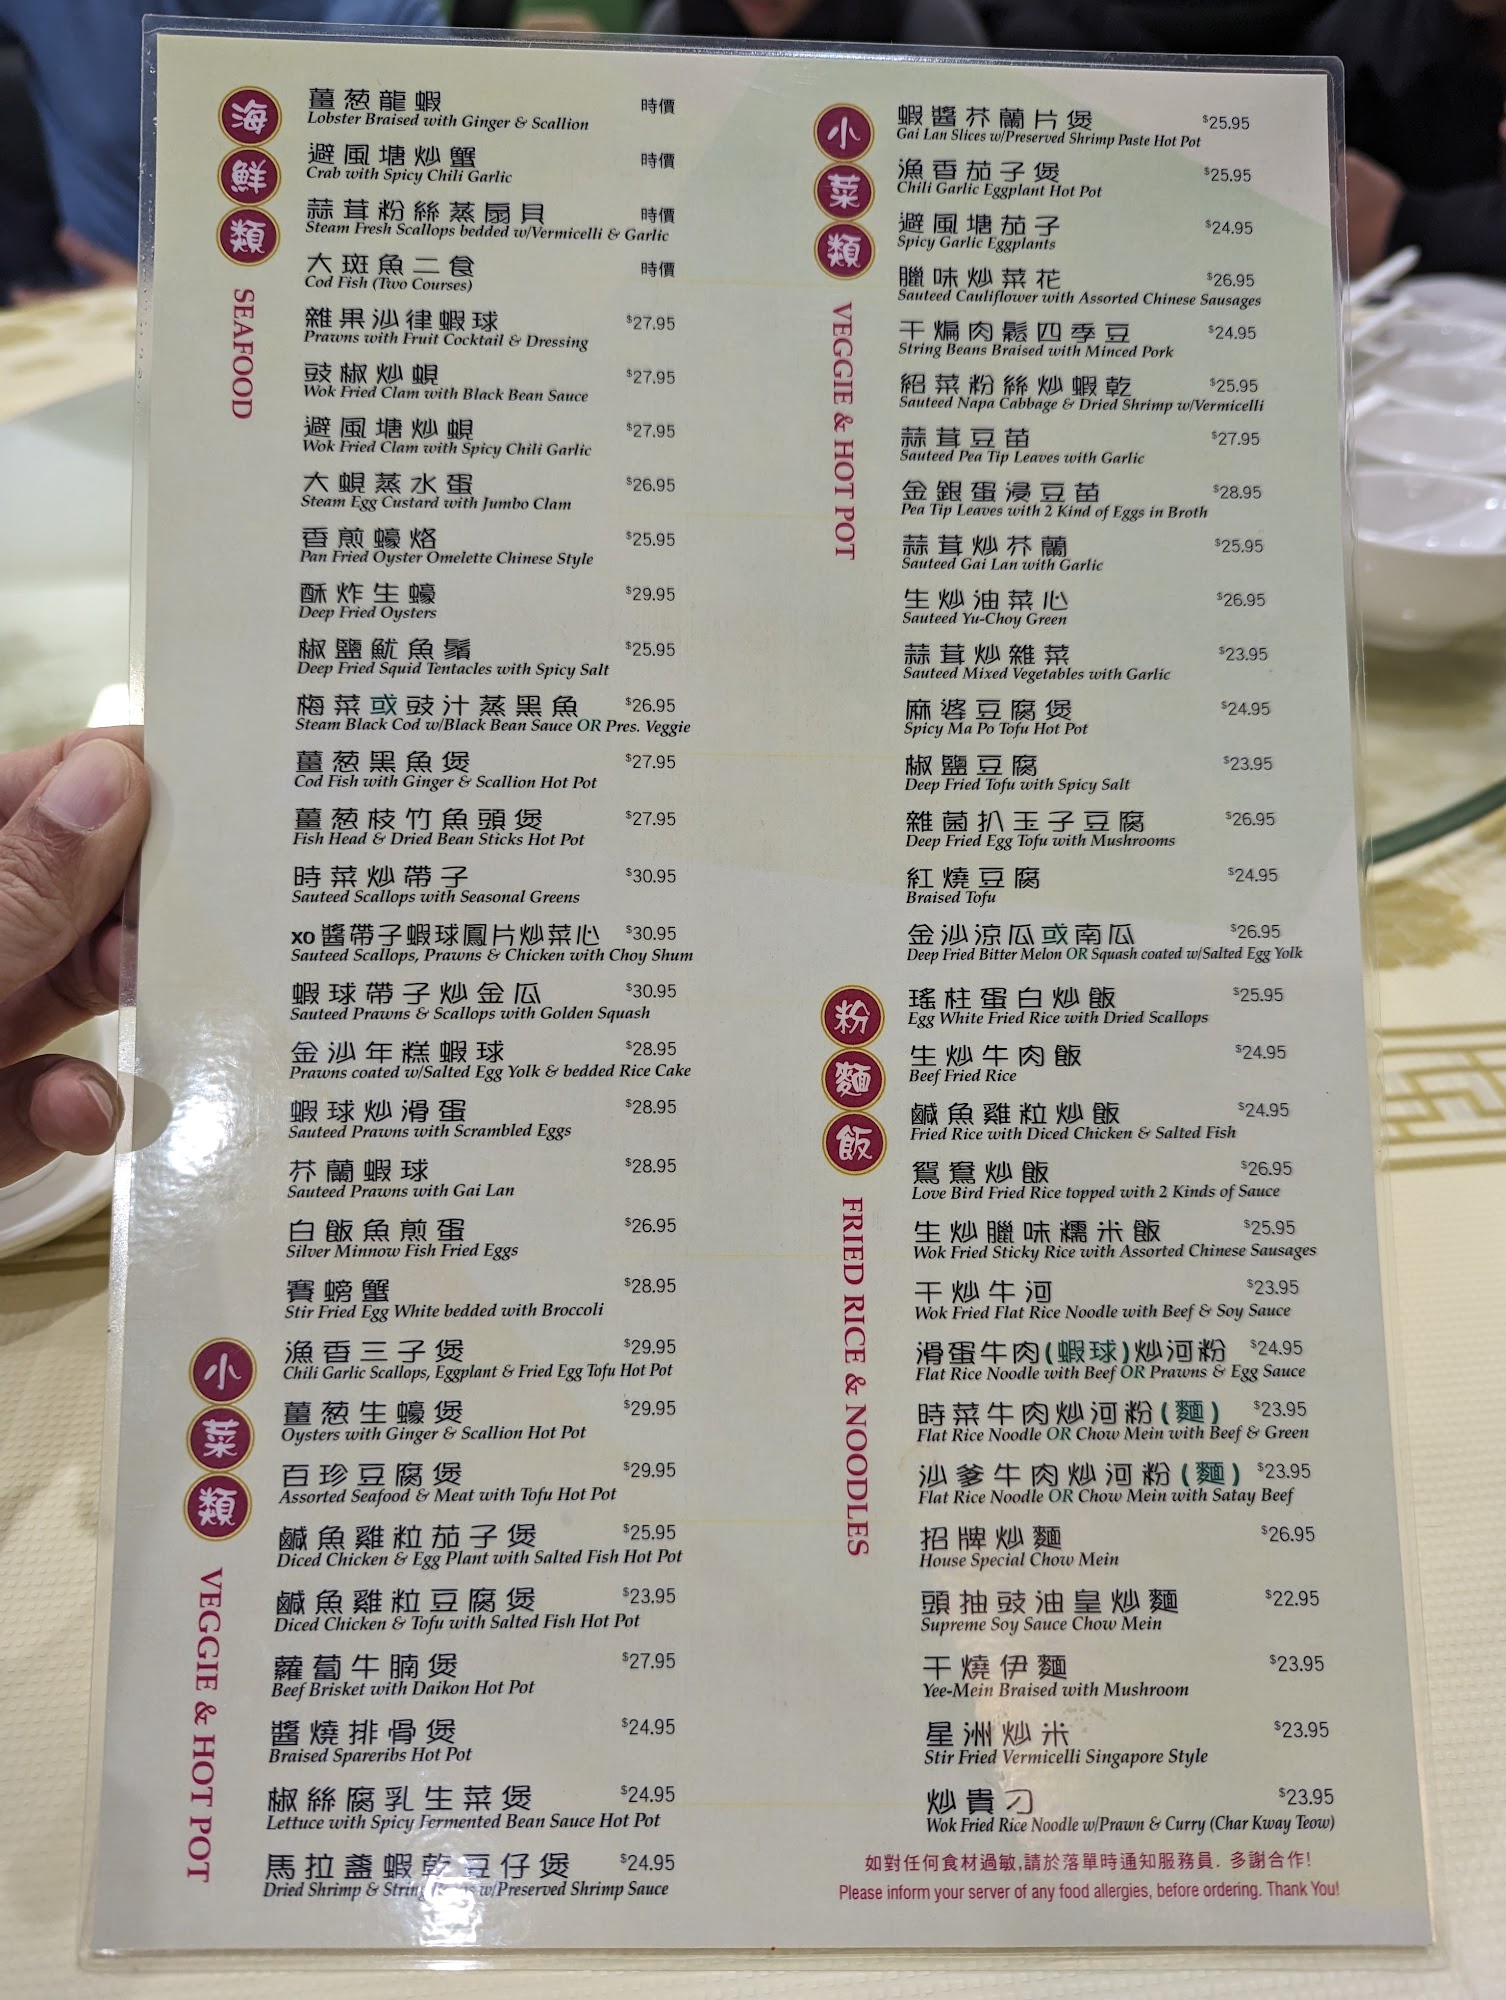 海鮮類
SEAFOOD
薑葱龍蝦 時價
Lobster Braised with Ginger & Scallion
避風塘炒蟹 時價
Crab with Spicy Chili Garlic
蒜茸粉絲蒸扇貝 時價
Steam Fresh Scallops bedded w/Vermicelli & Garlic
大斑魚二食 時價
Cod Fish (Two Courses)
雜果沙律蝦球 $27.95
Prawns with Fruit Cocktail & Dressing
豉椒炒蜆 $27.95
Wok Fried Clam with Black Bean Sauce
避風塘炒蜆 $27.95
Wok Fried Clam with Spicy Chili Garlic
大蜆蒸水蛋 $26.95
Steam Egg Custard with Jumbo Clam
香煎蠔烙 $25.95
Pan Fried Oyster Omelette Chinese Style
酥炸生蠔 $29.95
Deep Fried Oysters
椒鹽魷魚鬚 $25.95
Deep Fried Squid Tentacles with Spicy Salt
梅菜或豉汁蒸黑魚 $26.95
Steam Black Cod w/Black Bean Sauce OR Pres. Veggie
薑葱黑魚煲 $27.95
Cod Fish with Ginger & Scallion Hot Pot
薑葱枝竹魚頭煲 $27.95
Fish Head & Dried Bean Sticks Hot Pot
時菜炒帶子 $30.95
Sauteed Scallops with Seasonal Greens
xo醬帶子蝦球鳳片炒菜心 $30.95
Sauteed Scallops, Prawns & Chicken with Choy Shum
蝦球帶子炒金瓜 $30.95
Sauteed Prawns & Scallops with Golden Squash
金沙年糕蝦球 $28.95
Prawns coated w/Salted Egg Yolk & bedded Rice Cake
蝦球炒滑蛋 $28.95
Sauteed Prawns with Scrambled Eggs
芥蘭蝦球 $28.95
Sauteed Prawns with Gai Lan
白飯魚煎蛋 $26.95
Silver Minnow Fish Fried Eggs
賽螃蟹 $28.95
Stir Fried Egg White bedded with Broccoli
小菜類
VEGGIE & HOT POT
漁香三子煲 $29.95
Chili Garlic Scallops, Eggplant & Fried Egg Tofu Hot Pot
薑葱生蠔煲 $29.95
Oysters with Ginger & Scallion Hot Pot
百珍豆腐煲 $29.95
Assorted Seafood & Meat with Tofu Hot Pot
鹹魚雞粒茄子煲 $25.95
Diced Chicken & Egg Plant with Salted Fish Hot Pot
鹹魚雞粒豆腐煲 $23.95
Diced Chicken & Tofu with Salted Fish Hot Pot
蘿蔔牛腩煲 $27.95
Beef Brisket with Daikon Hot Pot
醬燒排骨煲 $24.95
Braised Spareribs Hot Pot
椒絲腐乳生菜煲 $24.95
Lettuce with Spicy Fermented Bean Sauce Hot Pot
馬拉盞蝦乾豆仔煲 $24.95
Dried Shrimp & String w/Preserved Shrimp Sauce
小菜類
VEGGIE & HOT POT
蝦醬芥蘭片煲 $25.95
Gai Lan Slices w/Preserved Shrimp Paste Hot Pot
漁香茄子煲 $25.95
Chili Garlic Eggplant Hot Pot
避風塘茄子 $24.95
Spicy Garlic Eggplants
臘味炒菜花 $26.95
Sauteed Cauliflower with Assorted Chinese Sausages
干煸肉鬆四季豆 $24.95
String Beans Braised with Minced Pork
紹菜粉絲炒蝦乾 $25.95
Sauteed Napa Cabbage & Dried Shrimp w/Vermicelli
蒜茸豆苗 $27.95
Sauteed Pea Tip Leaves with Garlic
金銀蛋浸豆苗 $28.95
Pea Tip Leaves with 2 Kind of Eggs in Broth
蒜茸炒芥蘭 $25.95
Sauteed Gai Lan with Garlic
生炒油菜心 $26.95
Sauteed Yu-Choy Green
蒜茸炒雜菜 $23.95
Sauteed Mixed Vegetables with Garlic
麻婆豆腐煲 $24.95
Spicy Ma Po Tofu Hot Pot
椒鹽豆腐 $23.95
Deep Fried Tofu with Spicy Salt
雜菌扒玉子豆腐 $26.95
Deep Fried Egg Tofu with Mushrooms
紅燒豆腐 $24.95
Braised Tofu
金沙涼瓜或南瓜 $26.95
Deep Fried Bitter Melon OR Squash coated w/Salted Egg Yolk
粉麵飯
FRIED RICE & NOODLES
瑤柱蛋白炒飯 $25.95
Egg White Fried Rice with Dried Scallops
生炒牛肉飯 $24.95
Beef Fried Rice
鹹魚雞粒炒飯 $24.95
Fried Rice with Diced Chicken & Salted Fish
鴛鴦炒飯 $26.95
Love Bird Fried Rice topped with 2 Kinds of Sauce
生炒臘味糯米飯 $25.95
Wok Fried Sticky Rice with Assorted Chinese Sausages
干炒牛河 $23.95
Wok Fried Flat Rice Noodle with Beef & Soy Sauce
滑蛋牛肉(蝦球)炒河粉 $24.95
Flat Rice Noodle with Beef OR Prawns & Egg Sauce
時菜牛肉炒河粉(麵) $23.95
Flat Rice Noodle OR Chow Mein with Beef & Green
沙爹牛肉炒河粉(麵) $23.95
Flat Rice Noodle OR Chow Mein with Satay Beef
招牌炒麵 $26.95
House Special Chow Mein
頭抽豉油皇炒麵 $22.95
Supreme Soy Sauce Chow Mein
干燒伊麵 $23.95
Yee-Mein Braised with Mushroom
星洲炒米 $23.95
Stir Fried Vermicelli Singapore Style
炒貴刁 $23.95
Wok Fried Rice Noodle w/Prawn & Curry (Char Kway Teow)
如對任何食材過敏,請於落單時通知服務員. 多謝合作!
Please inform your server of any food allergies, before ordering. Thank You!